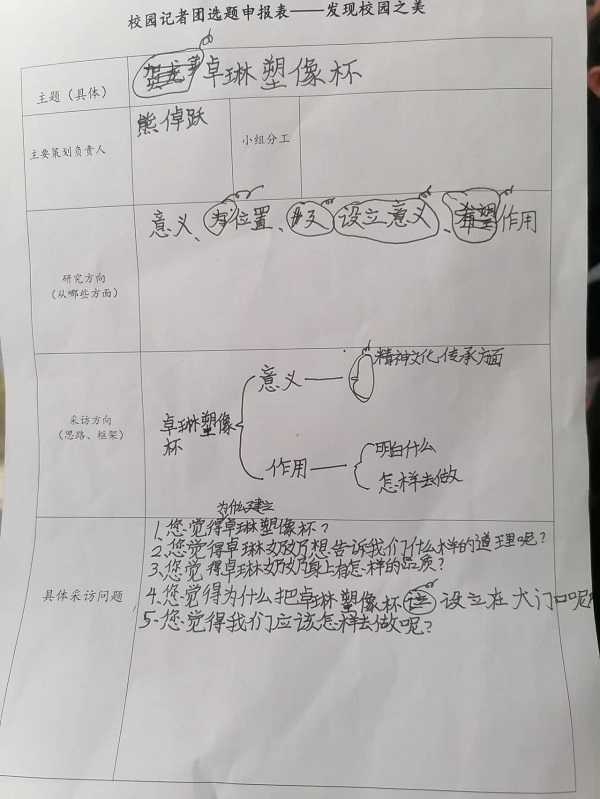 校园记者团选题申报表——发现校园之美
主题（具体）
卓琳塑像杯
主要策划负责人
熊倬跃
小组分工
研究方向
（从哪些方面）
意义、位置、设立意义、希望作用
采访方向
（思路、框架）
卓琳塑像
杯
意义——精神文化传承方面
作用——
明白什么
怎样去做
具体采访问题
为什么建立
1.您觉得卓琳塑像杯？
2.您觉得卓琳奶奶想告诉我们什么样的道理呢？
3.您觉得卓琳奶奶身上有怎样的品质？
4.您觉得为什么把卓琳塑像杯设立在大门口呢？
5.您觉得我们应该怎样去做呢？